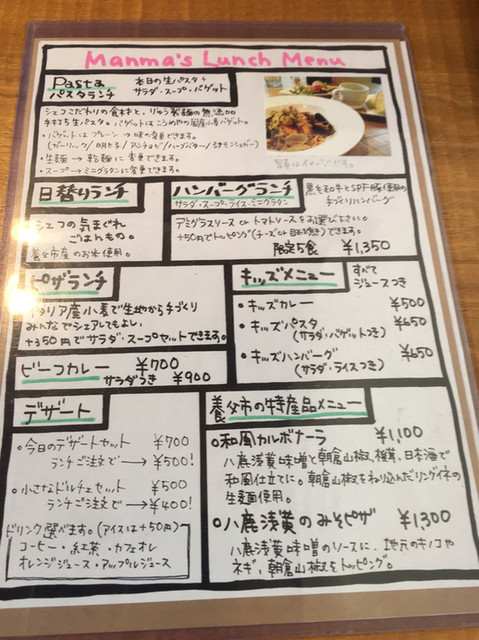 Manma's Lunch Menu
Pasta
パスタランチ
本日の生パスタ+
サラダ・スープ・バゲット
シェフこだわりの食材と、りゅう製麺の無添加
もちもち生パスタ。バゲットはこうめやの国産小麦バゲット。
・バゲットはプレーン→味の変更できます。
(ガーリック/明太子/アンチョビ/ハーブバター/シナモンシュガー)
・生麺→乾麺に変更できます。
・スープ→ミニグラタンに変更できます。
写真はイメージです。
日替りランチ
シェフの気まぐれ
ごはんもの。
養父市産のお米使用。
ハンバーグランチ
サラダ・スープ・ライス・ミニグラタン
黒毛和牛とSPF豚使用の
手づくりハンバーグ
デミグラスソース or トマトソースをお選び下さい。
+50円でトッピング(チーズ or 目玉焼き)できます。
限定5食 ¥1,350
ピザランチ
イタリア産小麦で生地から手づくり
みんなでシェアしてもよし、
+350円でサラダ・スープセットできます。
キッズメニュー
すべて
ジュースつき
・キッズカレー ¥500
・キッズパスタ ¥650
(サラダ・バゲットつき)
・キッズハンバーグ ¥650
(サラダ・ライスつき)
ビーフカレー ¥700
サラダつき ¥900
デザート
○今日のデザートセット ¥700
ランチご注文で→¥500!
○小さなドルチェセット ¥500
ランチご注文で→¥400!
ドリンク選べます。(アイスは+50円)
コーヒー・紅茶・カフェオレ
オレンジジュース・アップルジュース
養父市の特産品メニュー
○和風カルボナーラ ¥1,100
八鹿浅黄味噌と朝倉山椒、椎茸、日本海で
和風仕立てに。朝倉山椒をねり込んだリングイネの
生麺使用。
○八鹿浅黄のみそピザ ¥1,300
八鹿浅黄味噌のソースに、地元のキノコや
ネギ、朝倉山椒をトッピング。